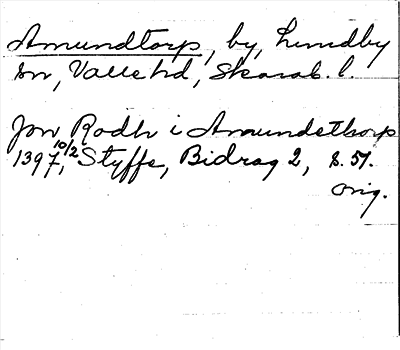 Amundtorp, by, Lundby
sn, Valle hd, Skarab. l.
Jon Rodh i Amundethorp
1397 10/2, Styffe, Bidrag 2, s. 57.
orig.